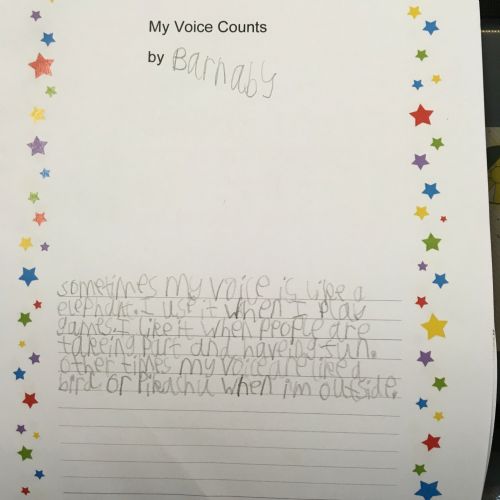 My Voice Counts
by Barnaby
sometimes my voice is like a
elephant. I use it when I play
games. I like it when people are
takeing part and haveing fun.
other times my voice are like a
bird or Pikachu when i'm outside.